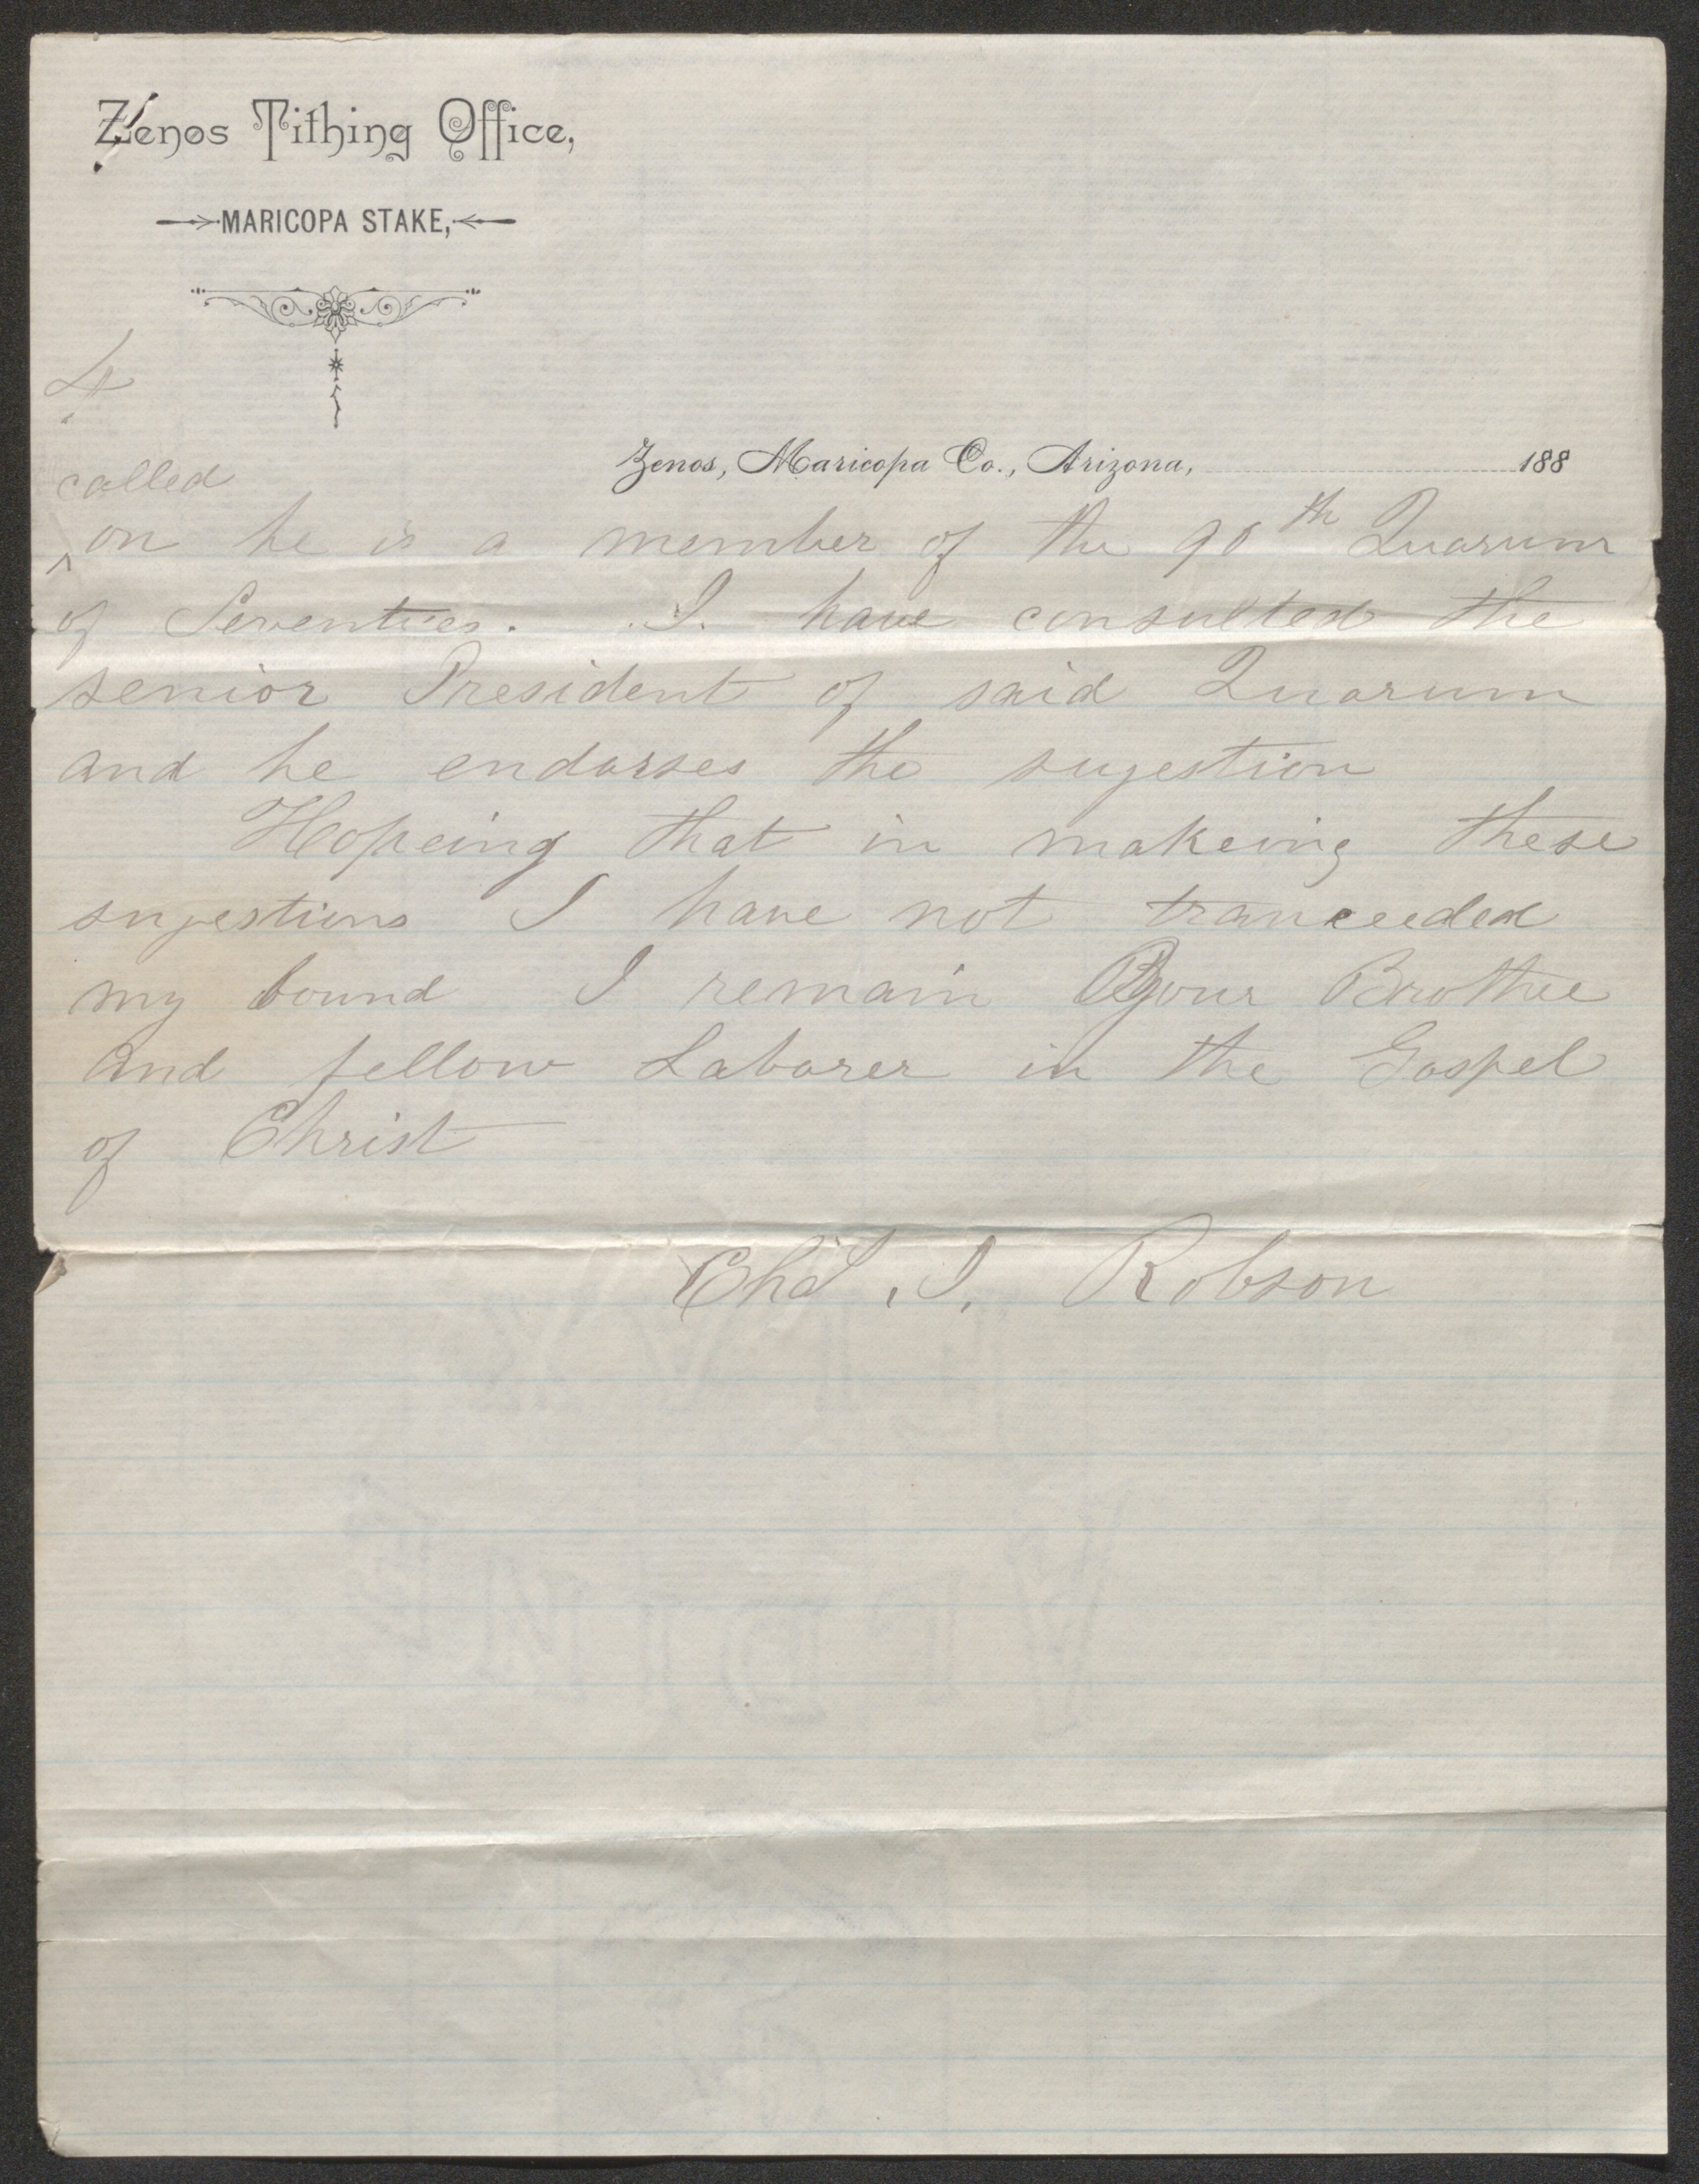 Zenos Tithing Office,
MARICOPA STAKE,
4
Zenos, Maricopa Co., Arizona, 188
called
^on he is a member of the 90th Quorum
of Seventies. I have consulted the
senior President of said Quorum
and he endorses the sugestion
Hopeing that in makeing these
sugestions I have not tranceeded
my bound I remain your Brother
and fellow Laborer in the Gospel
of Christ
Chas. I. Robson